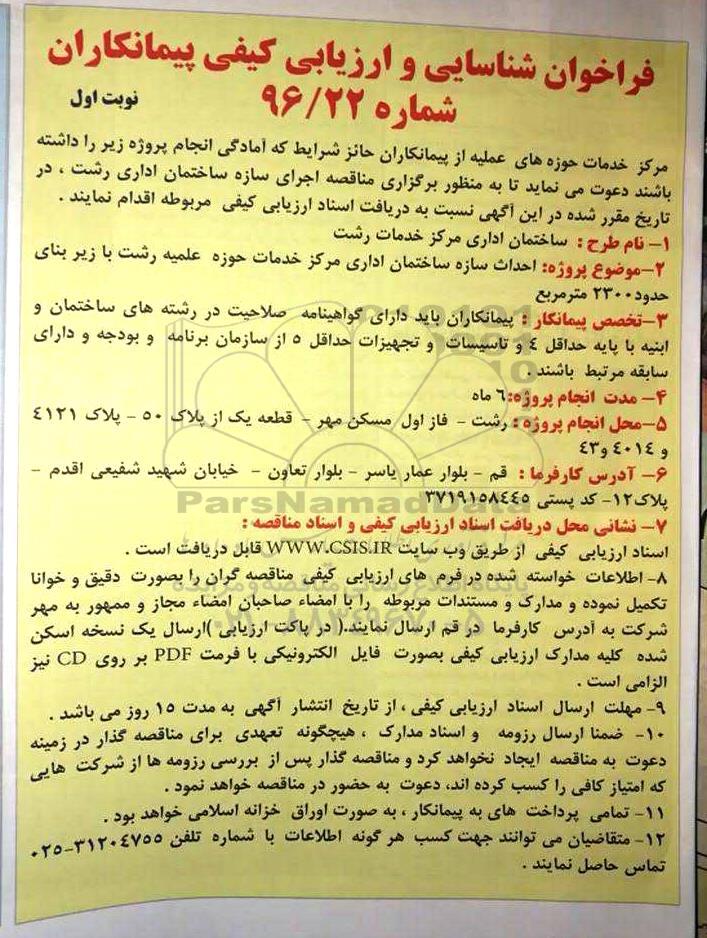 فراخوان شناسایی و ارزیابی کیفی پیمانکاران
شماره ۹۶/۲۲
نوبت اول
مرکز خدمات حوزه های عملیه از پیمانکاران حائز شرایط که آمادگی انجام پروژه زیر را داشته
باشند دعوت می نماید تا به منظور برگزاری مناقصه اجرای سازه ساختمان اداری رشت ، در
تاریخ مقرر شده در این آگهی نسبت به دریافت اسناد ارزیابی کیفی مربوطه اقدام نمایند .
۱- نام طرح : ساختمان اداری مرکز خدمات رشت
۲-موضوع پروژه: احداث سازه ساختمان اداری مرکز خدمات حوزه علمیه رشت با زیر بنای
حدود۲۳۰۰ مترمربع
۳-تخصص پیمانکار : پیمانکاران باید دارای گواهینامه صلاحیت در رشته های ساختمان و
ابنیه با پایه حداقل ٤ و تاسیسات و تجهیزات حداقل ٥ از سازمان برنامه و بودجه و دارای
سابقه مرتبط باشند .
٤- مدت انجام پروژه:٦ ماه
٥-محل انجام پروژه : رشت - فاز اول مسکن مهر - قطعه یک از پلاک ٥٠ - پلاک ٤١٢١
و ٤٠١٤ و٤٣
٦- آدرس کارفرما : قم - بلوار عمار یاسر - بلوار تعاون - خیابان شهید شفیعی اقدم -
پلاک۱۲- کد پستی ۳۷۱۹۱۵۸٤٤٥
ParsNamadData
۷- نشانی محل دریافت اسناد ارزیابی کیفی و اسناد مناقصه :
اسناد ارزیابی کیفی از طریق وب سایت WWW.CSIS.IR قابل دریافت است .
۸- اطلاعات خواسته شده در فرم های ارزیابی کیفی مناقصه گران را بصورت دقیق و خوانا
تکمیل نموده و مدارک و مستندات مربوطه را با امضاء صاحبان امضاء مجاز و ممهور به مهر
شرکت به آدرس کارفرما در قم ارسال نمایند.( در پاکت ارزیابی )ارسال یک نسخه اسکن
شده کلیه مدارک ارزیابی کیفی بصورت فایل الکترونیکی با فرمت PDF بر روی CD نیز
الزامی است .
۹- مهلت ارسال اسناد ارزیابی کیفی ، از تاریخ انتشار آگهی به مدت ۱٥ روز می باشد .
۱۰- ضمنا ارسال رزومه و اسناد مدارک ، هیچگونه تعهدی برای مناقصه گذار در زمینه
دعوت به مناقصه ایجاد نخواهد کرد و مناقصه گذار پس از بررسی رزومه ها از شرکت هایی
که امتیاز کافی را کسب کرده اند، دعوت به حضور در مناقصه خواهد نمود .
۱۱- تمامی پرداخت های به پیمانکار ، به صورت اوراق خزانه اسلامی خواهد بود .
۱۲- متقاضیان می توانند جهت کسب هر گونه اطلاعات با شماره تلفن ۳۱۲۰٤۷٥٥-۰۲٥
تماس حاصل نمایند .